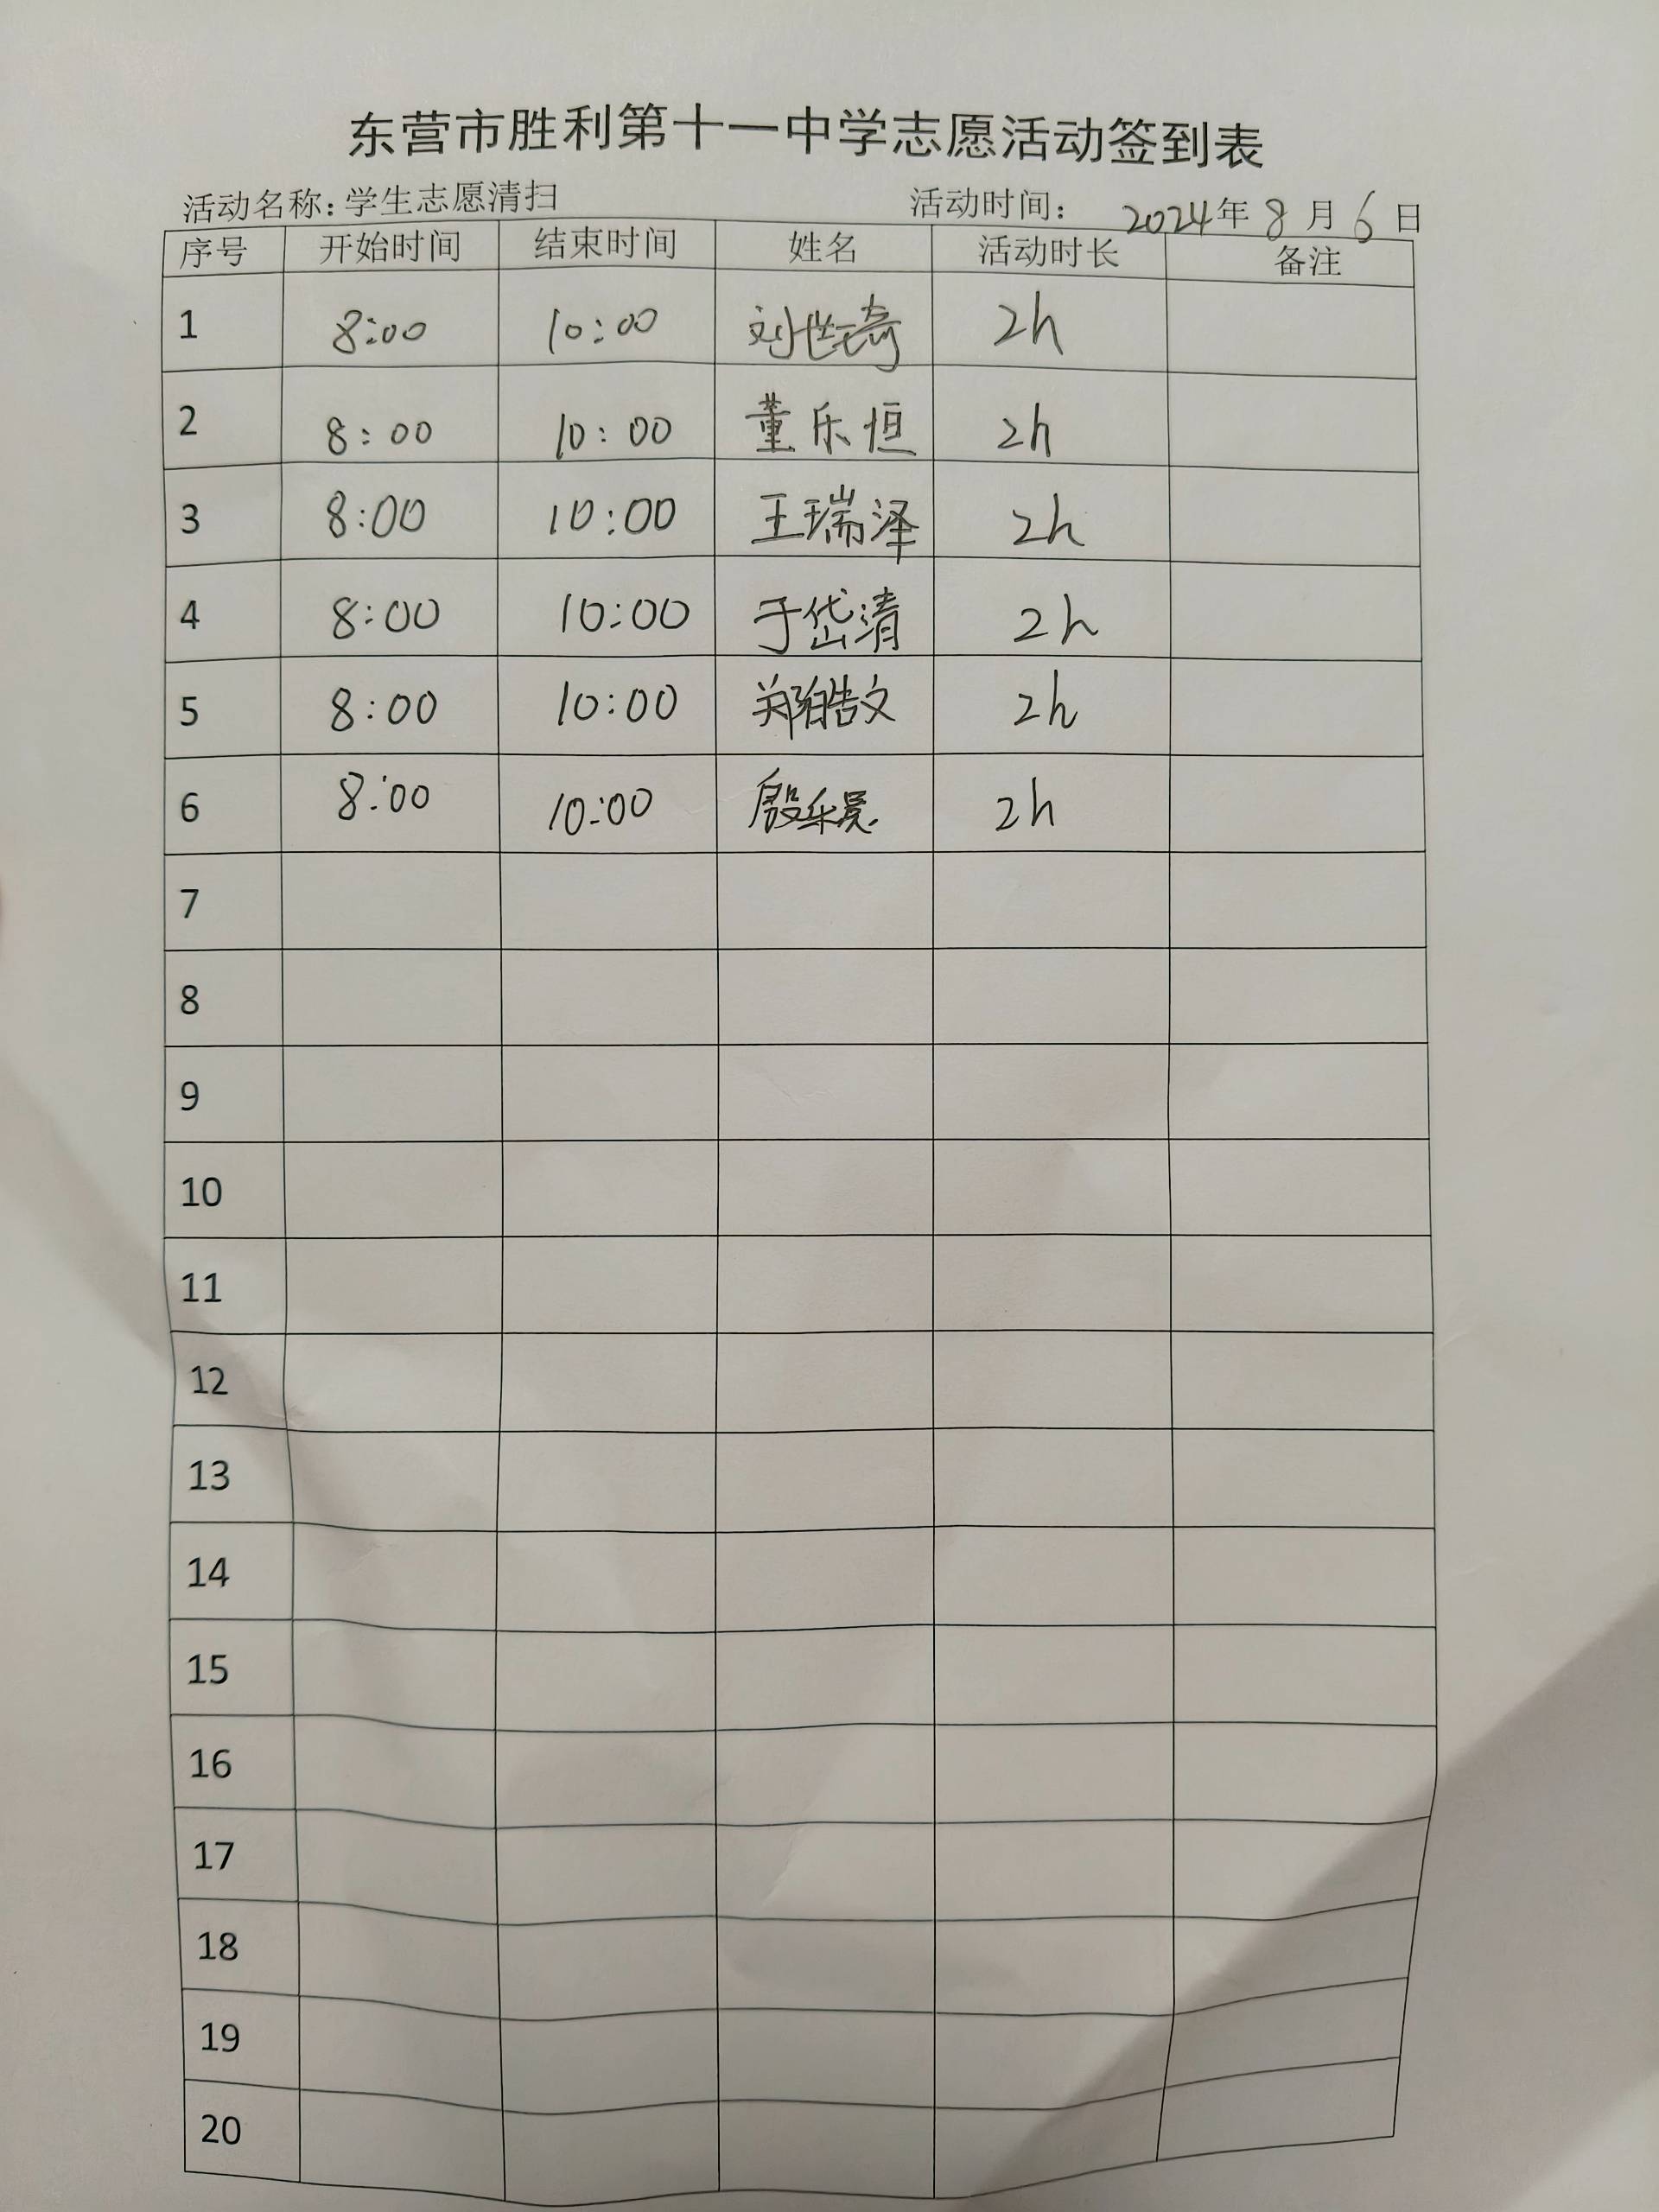 东营市胜利第十一中学志愿活动签到表
活动名称:学生志愿清扫 活动时间: 2024年8月6日
序号 开始时间 结束时间 姓名 活动时长 备注
1 8:00 10:00 刘世琦 2h
2 8:00 10:00 董乐恒 2h
3 8:00 10:00 王瑞泽 2h
4 8:00 10:00 于岱清 2h
5 8:00 10:00 郑皓文 2h
6 8:00 10:00 2h
7
8
9
10
11
12
13
14
15
16
17
18
19
20